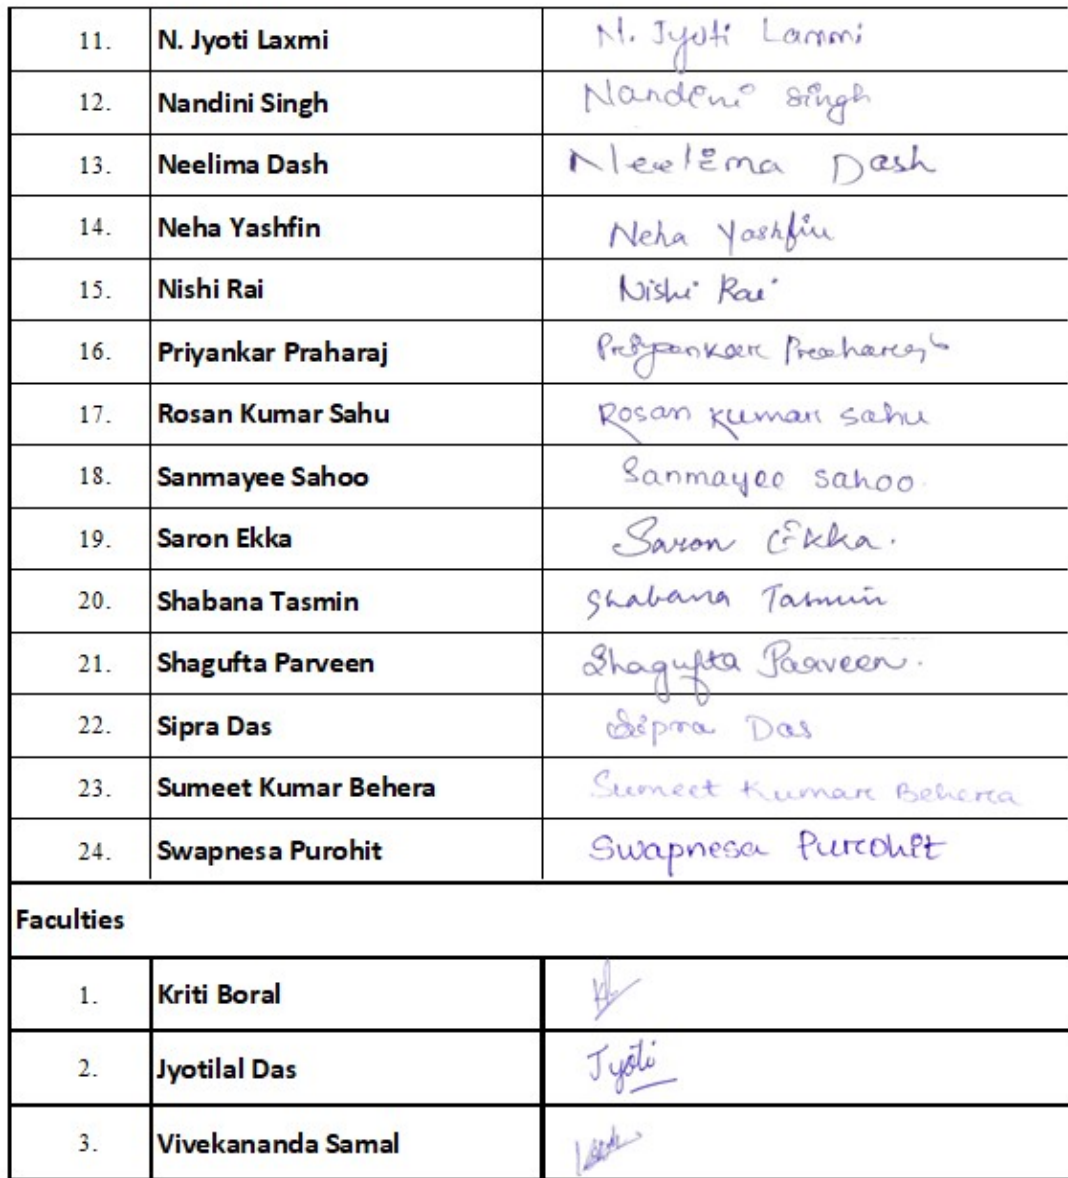 11. N. Jyoti Laxmi N. Jyoti Laxmi
12. Nandini Singh Nandini singh
13. Neelima Dash Neelima Dash
14. Neha Yashfin Neha Yashfin
15. Nishi Rai Nishi Rai
16. Priyankar Praharaj Priyankar Praharaj
17. Rosan Kumar Sahu Rosan Kumar sahu
18. Sanmayee Sahoo Sanmayee sahoo
19. Saron Ekka Saron Ekka.
20. Shabana Tasmin Shabana Tasmin
21. Shagufta Parveen Shagufta Parveen.
22. Sipra Das Sipra Das
23. Sumeet Kumar Behera Sumeet Kumar Behera
24. Swapnesa Purohit Swapnesa Purohit
Faculties
1. Kriti Boral
2. Jyotilal Das Jyoti
3. Vivekananda Samal